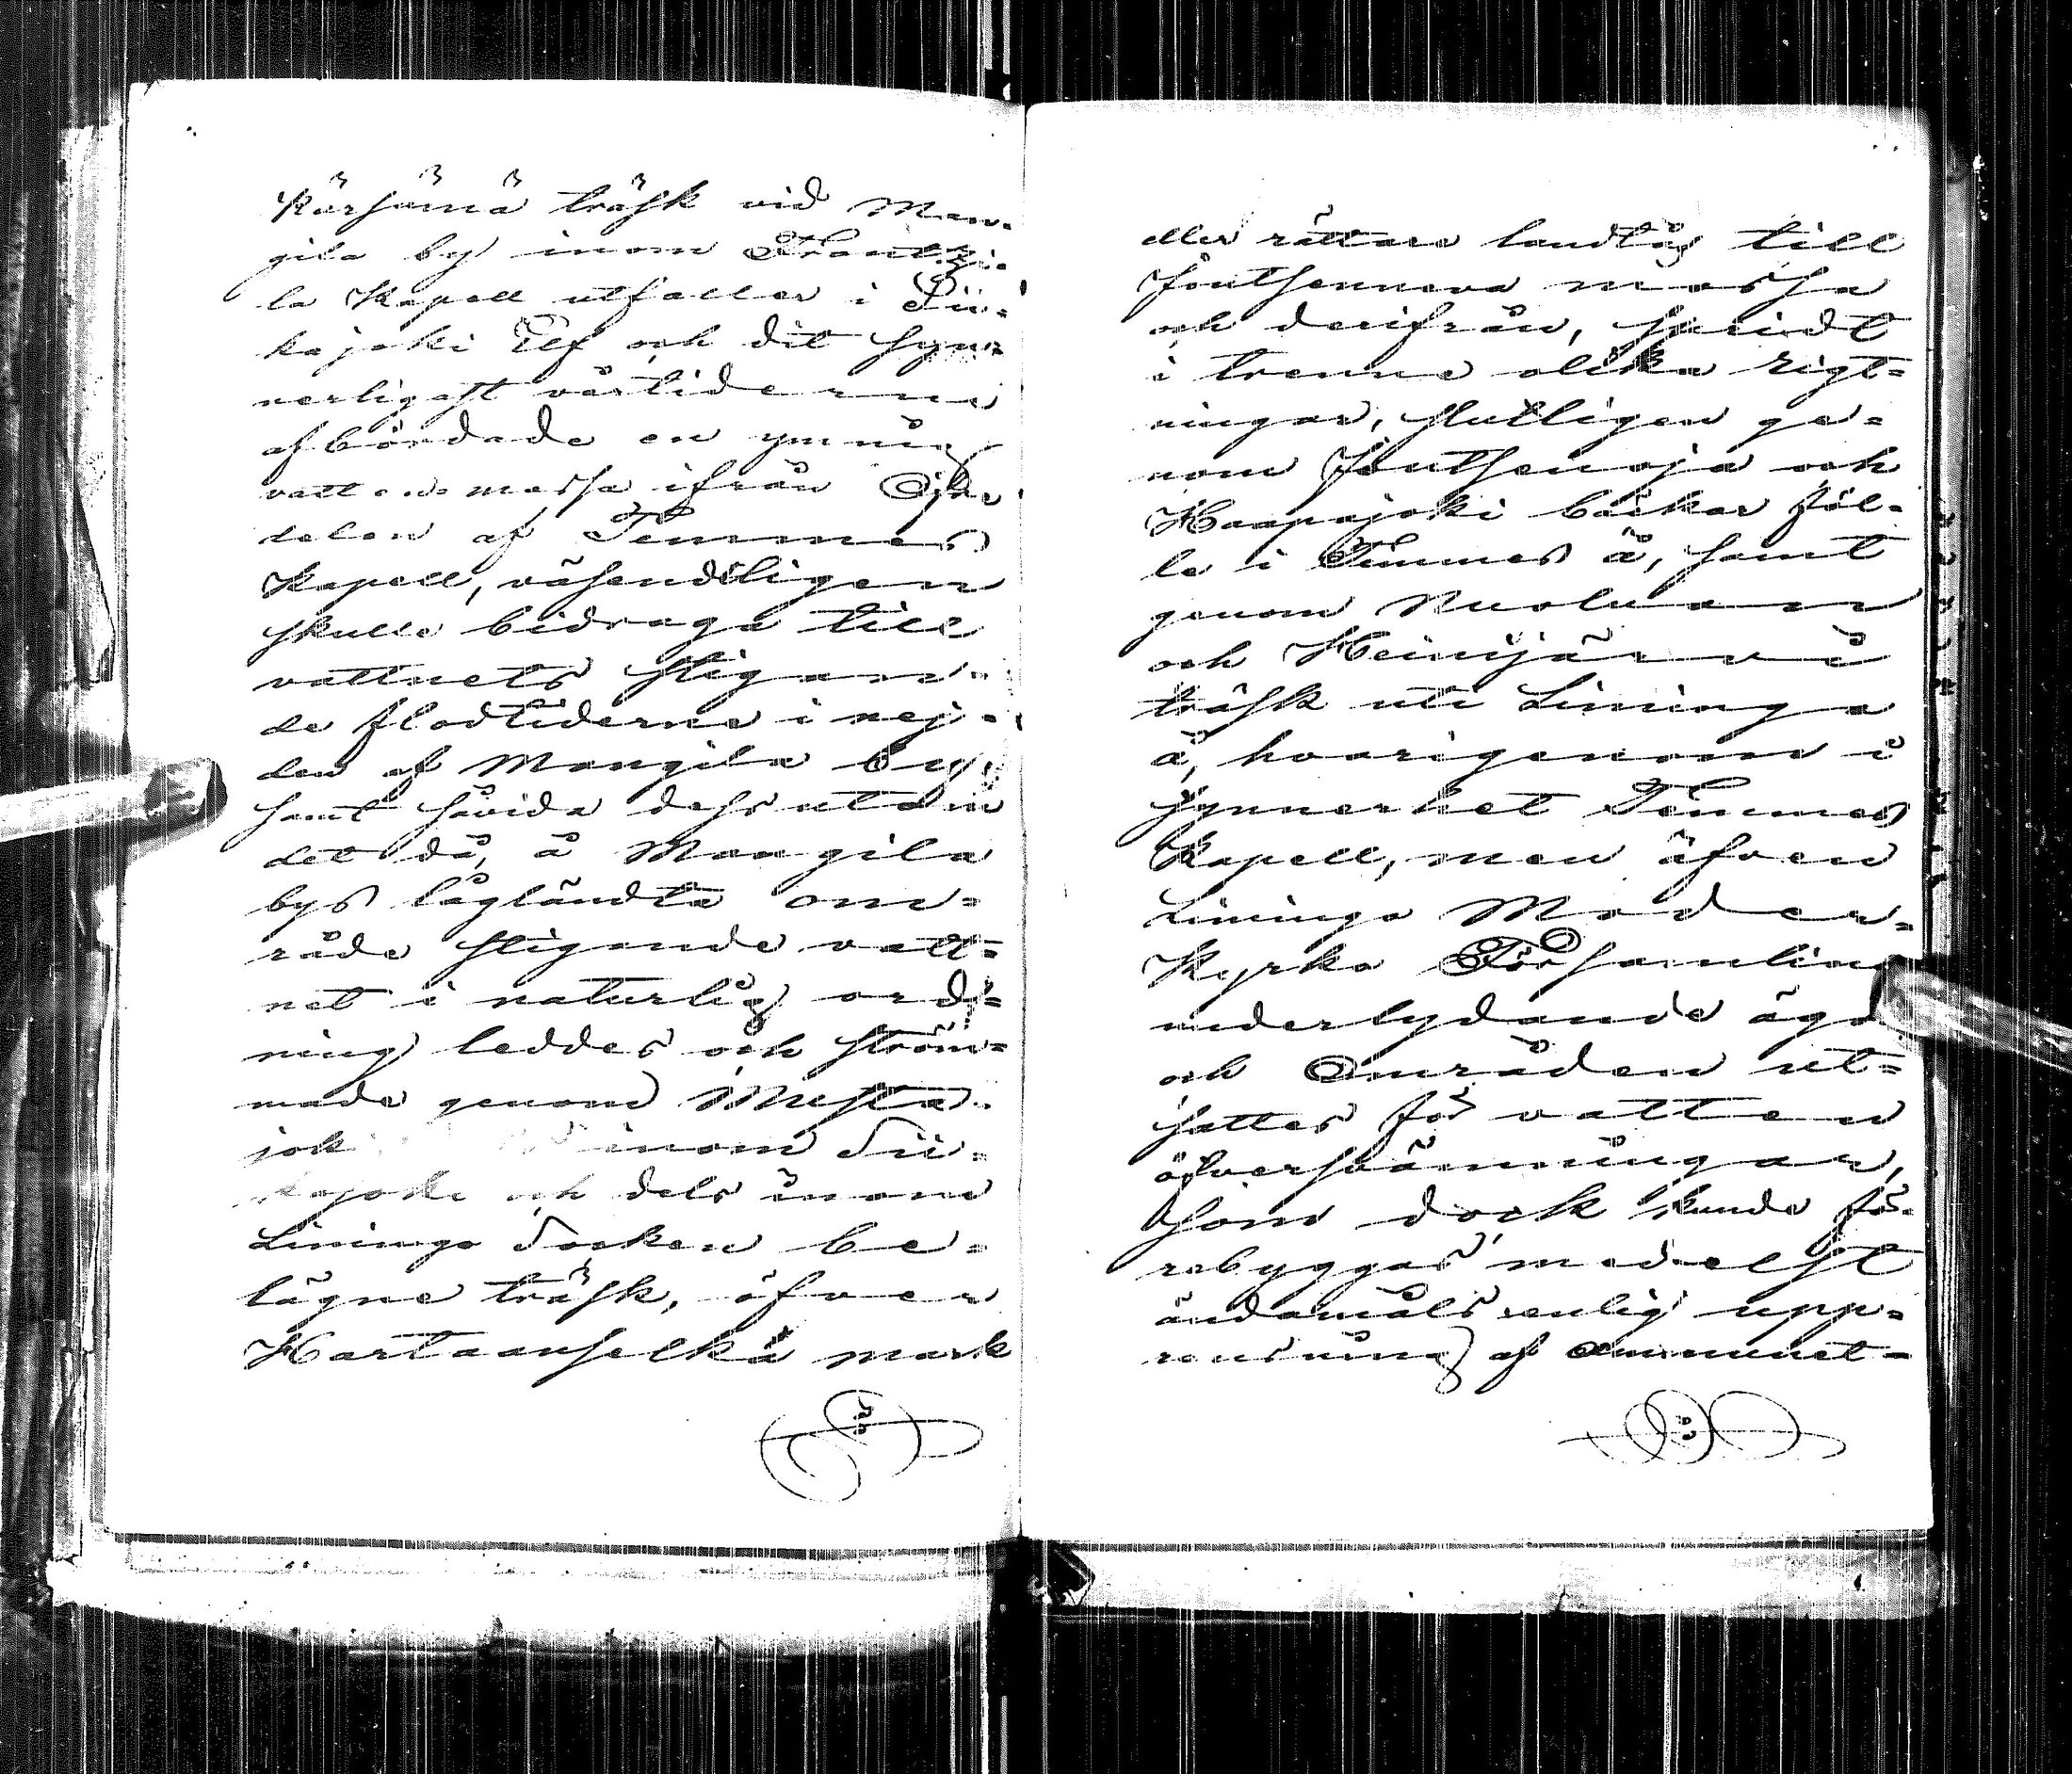 Kärsämä träsk vid Man-
gila by inom Frantzi-
la Kapell utfaller i Sii-
kajoki Elf och dit syn-
nerligast vårtiderne
afbördade en ymnig
vattenmassa ifrån Öfre
delen af Temmes
Kapell, väsendtligen
skulle bidraga till
vattnets stigan-
de flodtiderne i nej-
den af Mangila by,
samt såvida dessutom
det då, å Mangila
bys lågländta om-
råde stigande vatt-
net i naturlig ord-
ning leddes och ström-
made genom Musta-
joki inom Sii-
kajoki och dels inom
Limingo Socken be-
lägne träsk, öfver
Kartaanselkä mark
eller rättare landtåg till
Joutsenneva mossa
och derifrån, spridt
i trenne olika rigt-
ningar, slutligen ge-
nom Joutsenoja och
Haapajoki bäckar föl-
le i Temmes å, samt
genom Nuoluan
och Heinijärvi
träsk uti Limingo
å, hvarigenom i
synnerhet Temmes
Kapell, men äfven
Limingo Moder-
Kyrko Församling
underlydande ägor
och Områden ut-
sattes för vatten
öfversvämningar,
som dock kunde fö-
rebyggas medelst
ändamålsenlig upp-
rensning af